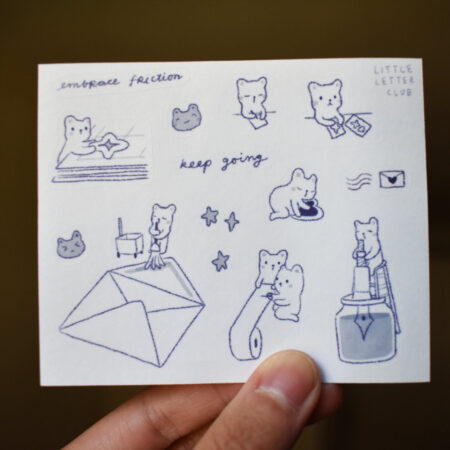 embrace friction
LITTLE
LETTER
CLUB
keep going